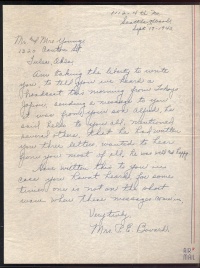 Seattle, Wash
Sept 15-1943
Mr & Mrs Young
Tulsa, Okla,
Am taking the liberty to write
you, to tell you we heard a
broadcast this morning from Tokyo
Japan, sending a message to you
it was from your son, he
said hello to you all, mentioned
several others, that he had written
you three letters wanted to hear
from you most of all, he was well & happy
Have written this to you in
case you haven't heard for some
time, now is not on the short
wave when these messages come in,
Very truly,
Mrs.